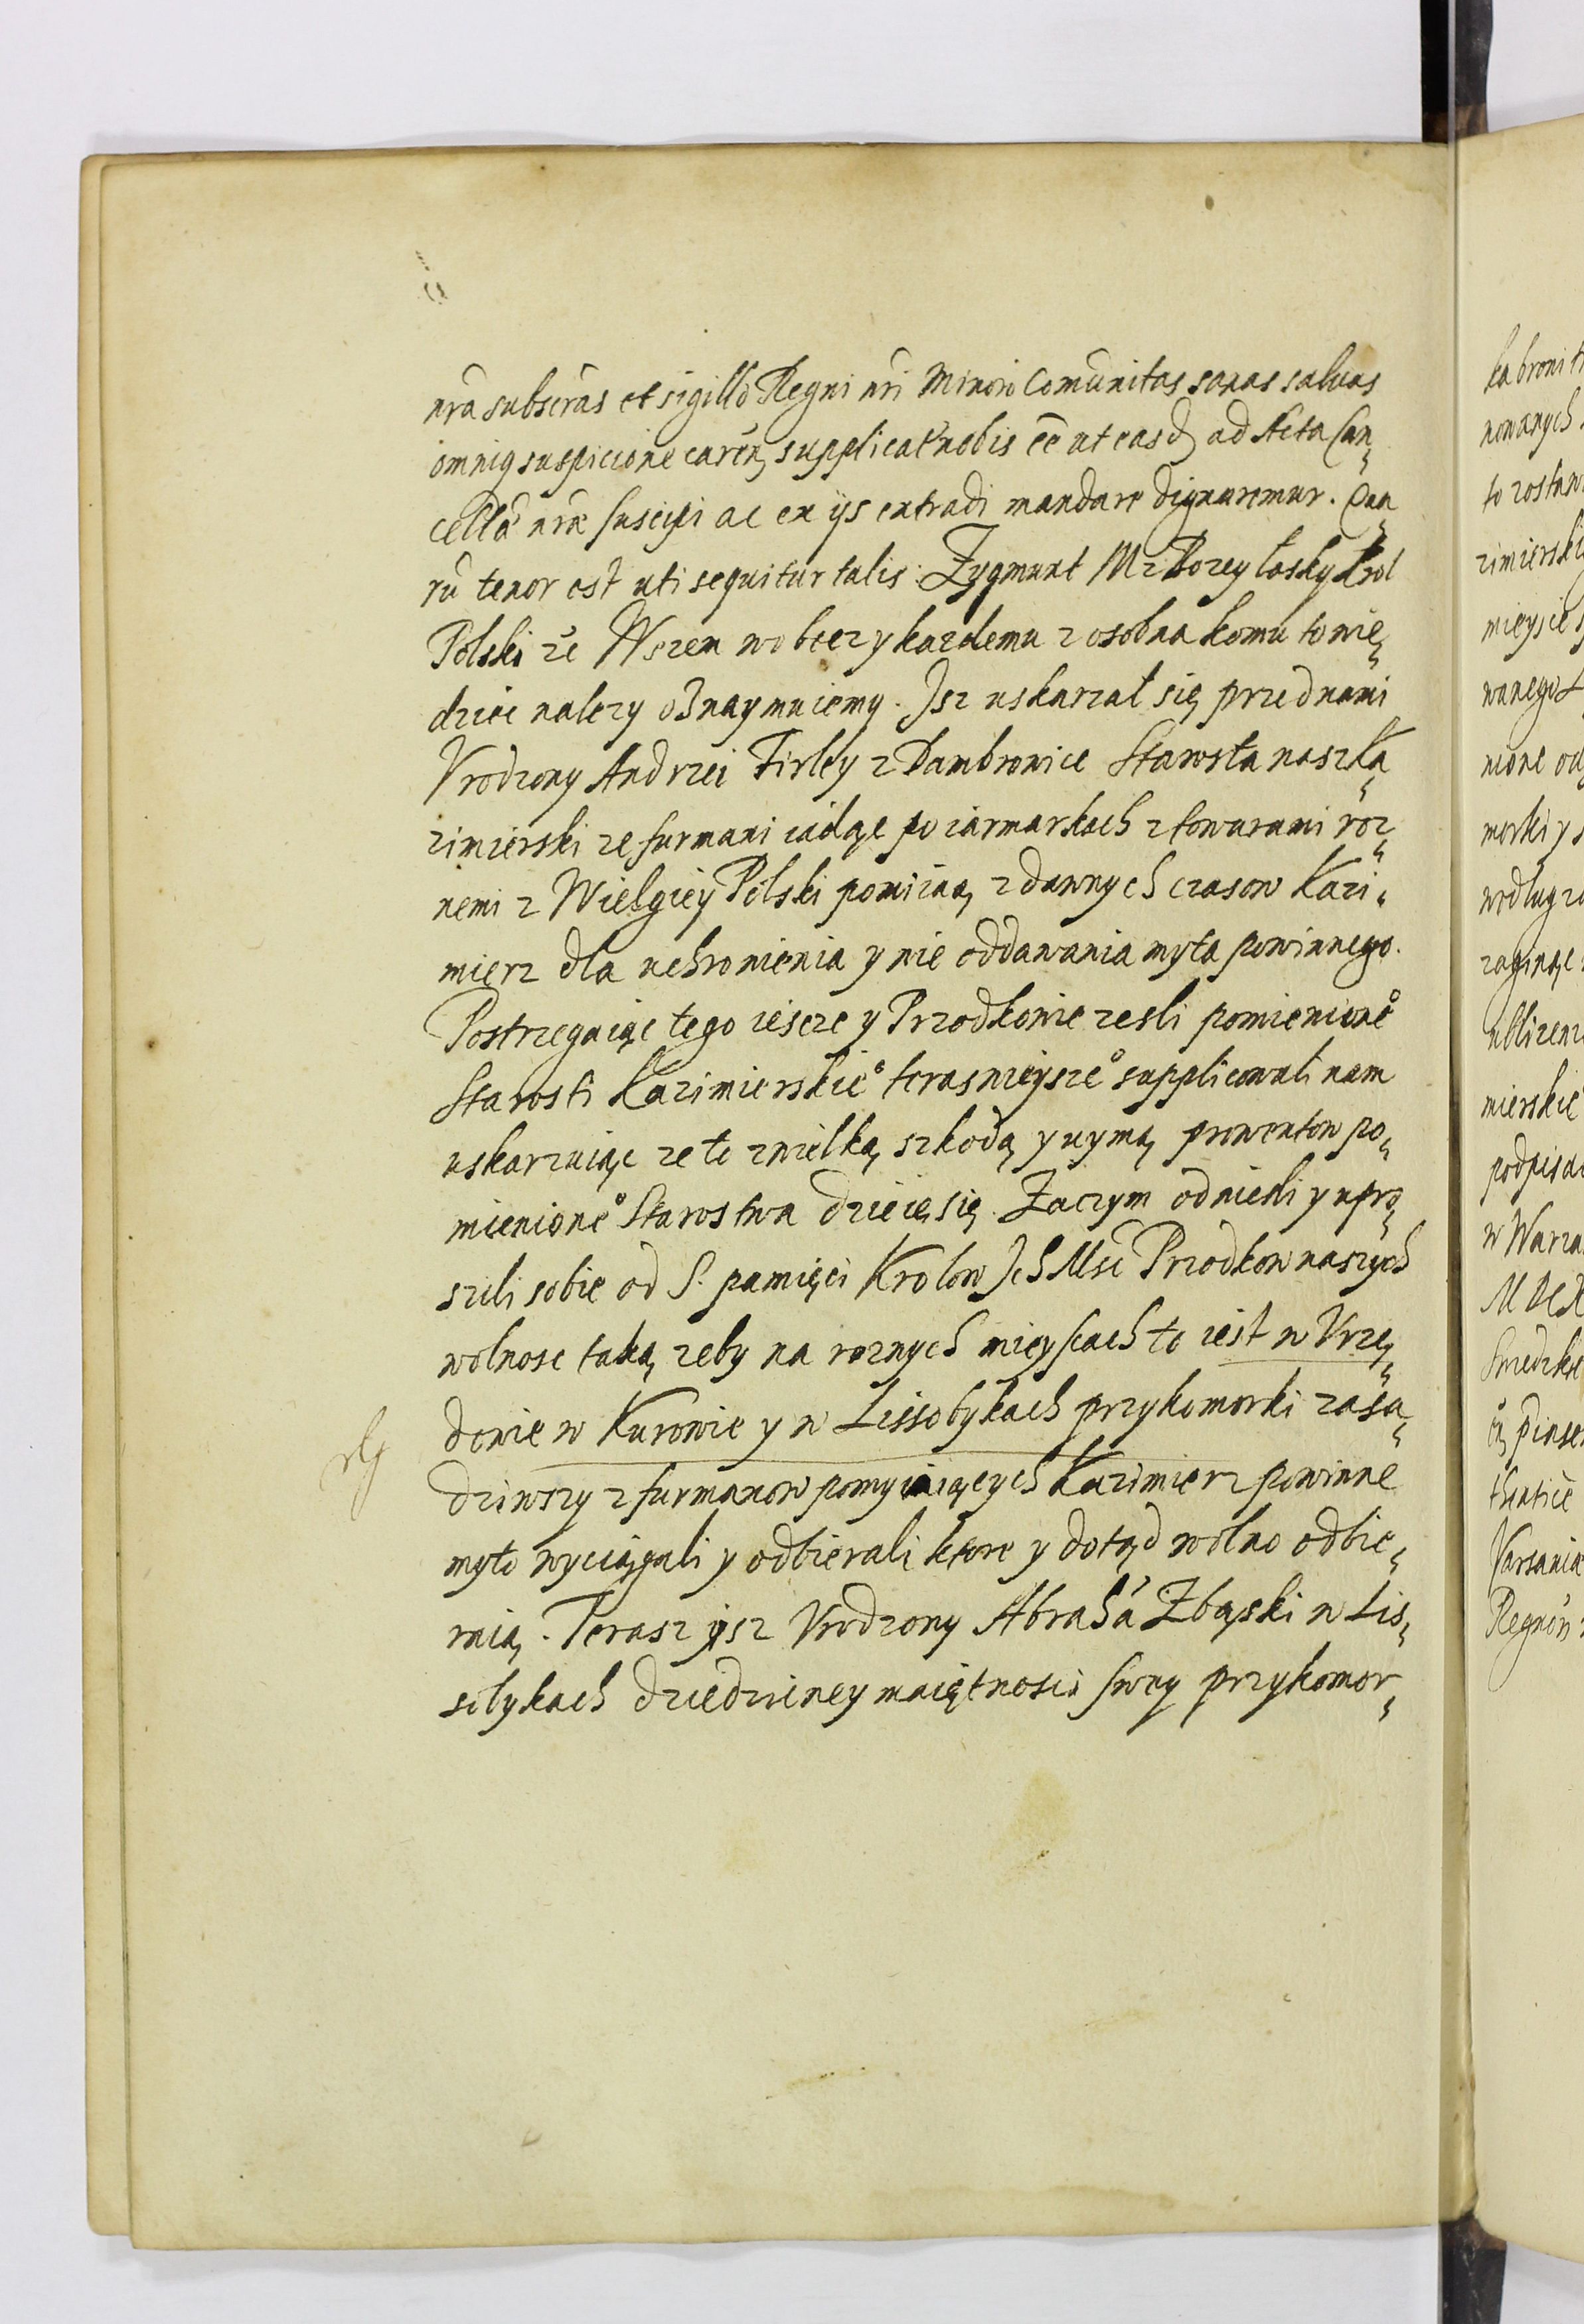 nrã subscras et sigillo Regni nri Minori Comũnitas sanas saluas
omniq suspicione caren, supplicatũ nobis ẽe ut easd ad Acta Can„
cellã nrã suscipi ac ex ijs extradi mandare dignaremur. Qua„
rũ tenor est uti sequitur talis: Zygmunt III z Bozey łasky krol
Polski ze Wszem wobecz y kazdemu z osobna komu to wie„
dziec nalezy oznaymuiemy. Jsz uskarzał się przed nami
Vrodzony Andrzei Firley z Dambrowice Starosta nasz Ka„
zimierski ze furmani iadąc po iarmarkach z towarami roz„
nemi z Wielgiey Polski pomiiaą z dawnych czasow Kazi„
mierz dla uchronienia y nie oddawania myta powinnego.
Postrzegaiąc tego iescze y Przodkowie zesli pomienione°
Starosti Kazimierskie° terasnieysze° supplicowali nam
uskarzaiąc ze to z wielką szkodą y uymą prowentow po„
mienione° Starostwa dzieie się. Zaczym odniesli y upro„
szili sobie od S. pamięci Krolow Jch Msc Przodkow naszych
wolnosc taką zeby na roznych mieyscach to iest w Vrzę„
dowie w Kurowie y w Lissobykach przykomorki zasa„
dziwszy z furmanow pomyiaiących Kazimierz powinne
myto wyciągali y odbierali ktore y dotąd wolno odbie„
raią. Terasz ysz Vrodzony Abrahã Zbąski w Lis„
sobykach dziedziczney maiętnosci swey przykomor„
ka broni
nowanych
to zostaw
zimierski
mieysce
wanego
nione od
morki y
wodlug
zaginąc
ublizen
mierskie
podpisa
w Warza
MDCX
Szwedzk
Varsaniæ